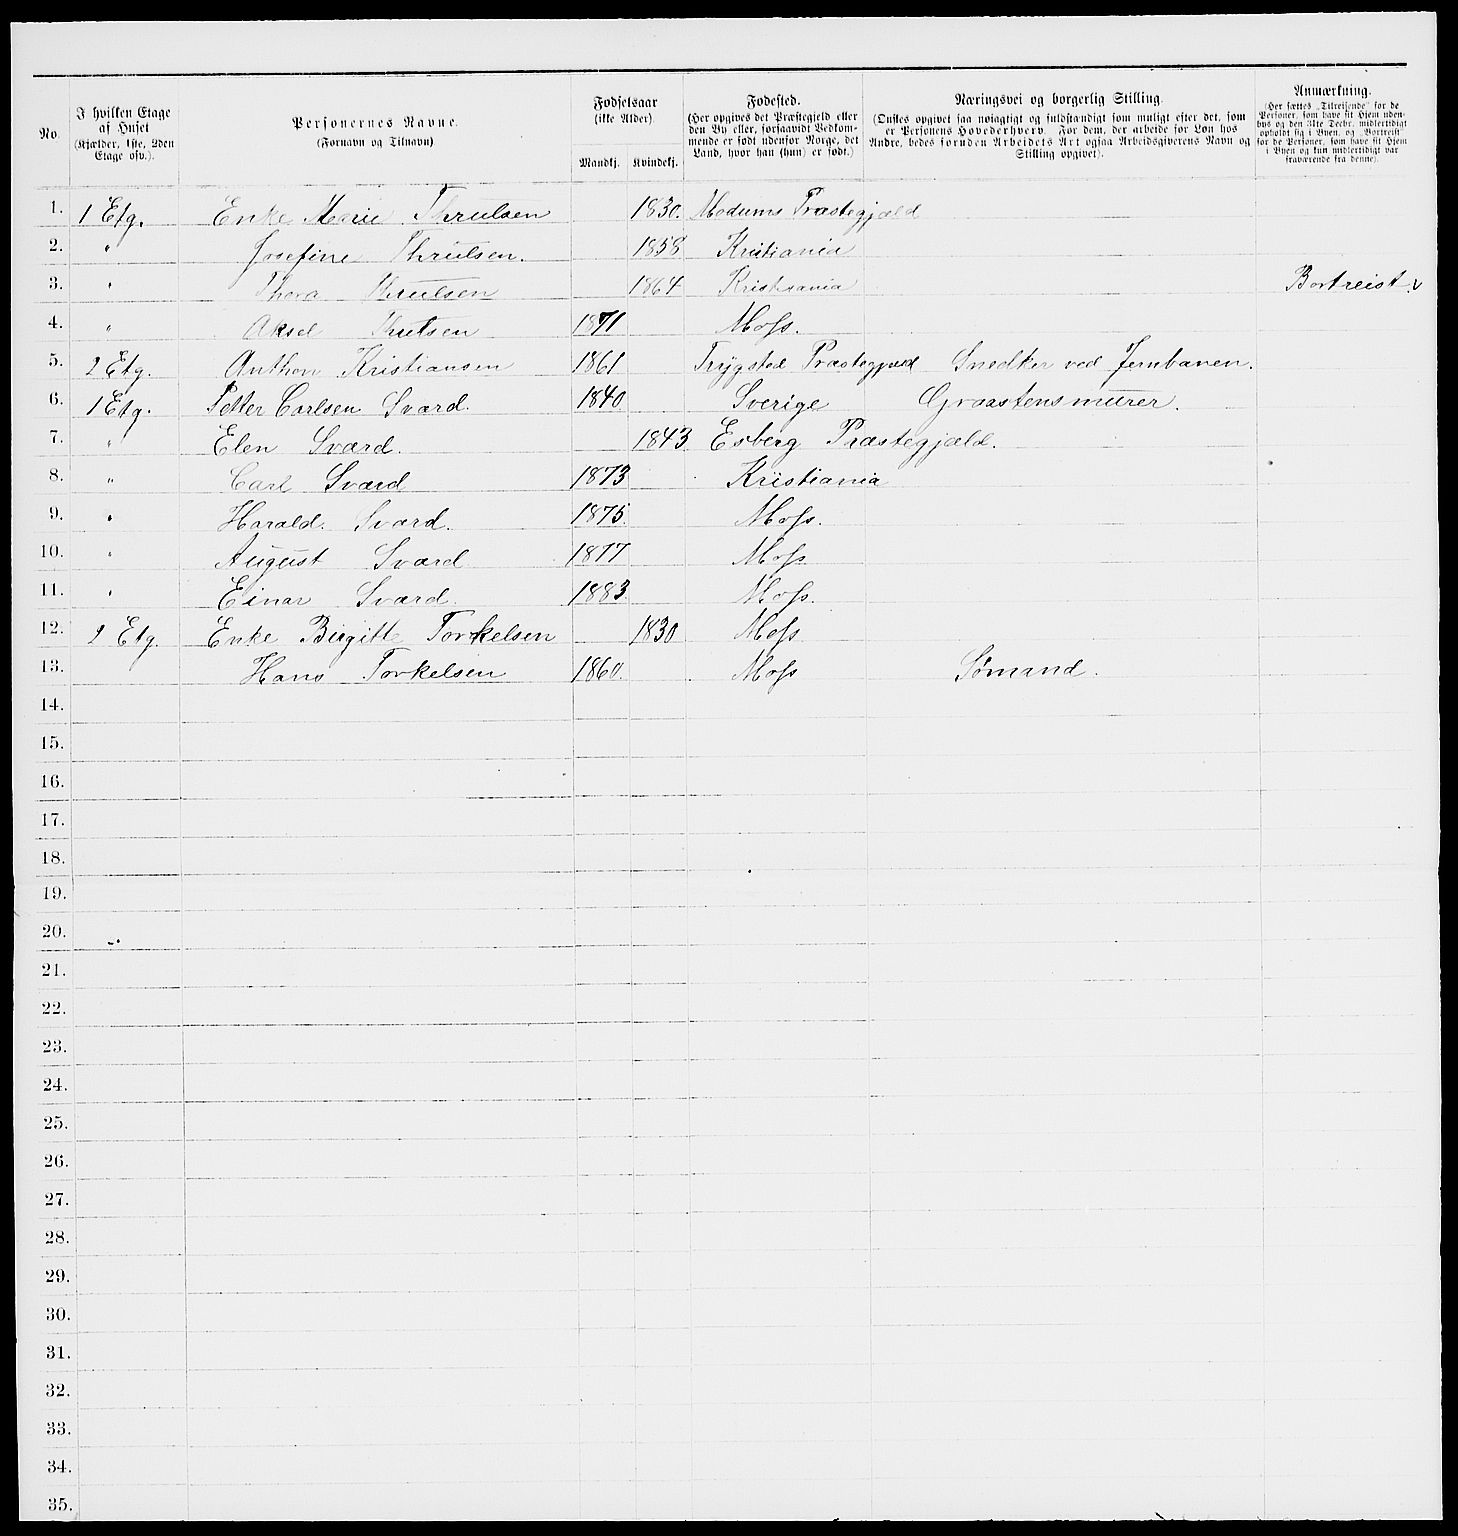 No. | I hvilken Etage af Huset (Kjælder, 1ste, 2den Etage osv.). | Personernes Navne. (Fornavn og Tilnavn) | Fødselsaar (ikke Alder). Mandkj. | Kvindekj. | Fødested. (Her opgives det Præstegjeld eller den By eller, forsaavidt Vedkommende er født udenfor Norge, det Land, hvor han (hun) er født.) | Næringsvei og borgerlig Stilling. (Ønskes opgivet saa nøiagtigt og fuldstændigt som muligt efter det, som er Personens Hovederhverv. For dem, der arbeide for Løn hos Andre, bedes foruden Arbeidets Art ogsaa Arbeidsgiverens Navn og Stilling opgivet). | Anmærkning. (Her sættes „Tilreisende" for de Personer, som have sit Hjem udenbys og den 31te Decbr. midlertidigt opholdt sig i Byen, og „Bortreist" for de Personer, som have sit Hjem i Byen og kun midlertidigt var fraværende fra denne).
1. 1 Etg. Enke Marie Thrulsen 1830. Modums Præstegjæld
2. " Josefine Thrulsen. 1858 Kristiania
3. " Thora Thrulsen 1864 Kristiania Bortreist.
4. " Aksel Thrulsen 1871 Moss.
5. 2 Etg. Anthon Kristiansen 1861 Trygstad Præstegjæld Snedker ved Jernbanen.
6. 1 Etg. Petter Carlsen Sværd. 1840 Sverige Graastensmurer.
7. " Elen Sværd. 1843 Esberg Præstegjæld.
8. " Carl Sværd 1873 Kristiania
9. " Harald. Sværd. 1875 Moss.
10. " August Sværd 1877 Moss
11. " Einar Sværd 1883 Moss.
12. 2 Etg. Enke Birgitte Torkelsen 1830 Moss
13. Hans Torkelsen 1860. Moss Sømand.
14.
15.
16.
17.
18.
19.
20.
21.
22.
23.
24.
25.
26.
27.
28.
29.
30.
31.
32.
33.
34.
35.